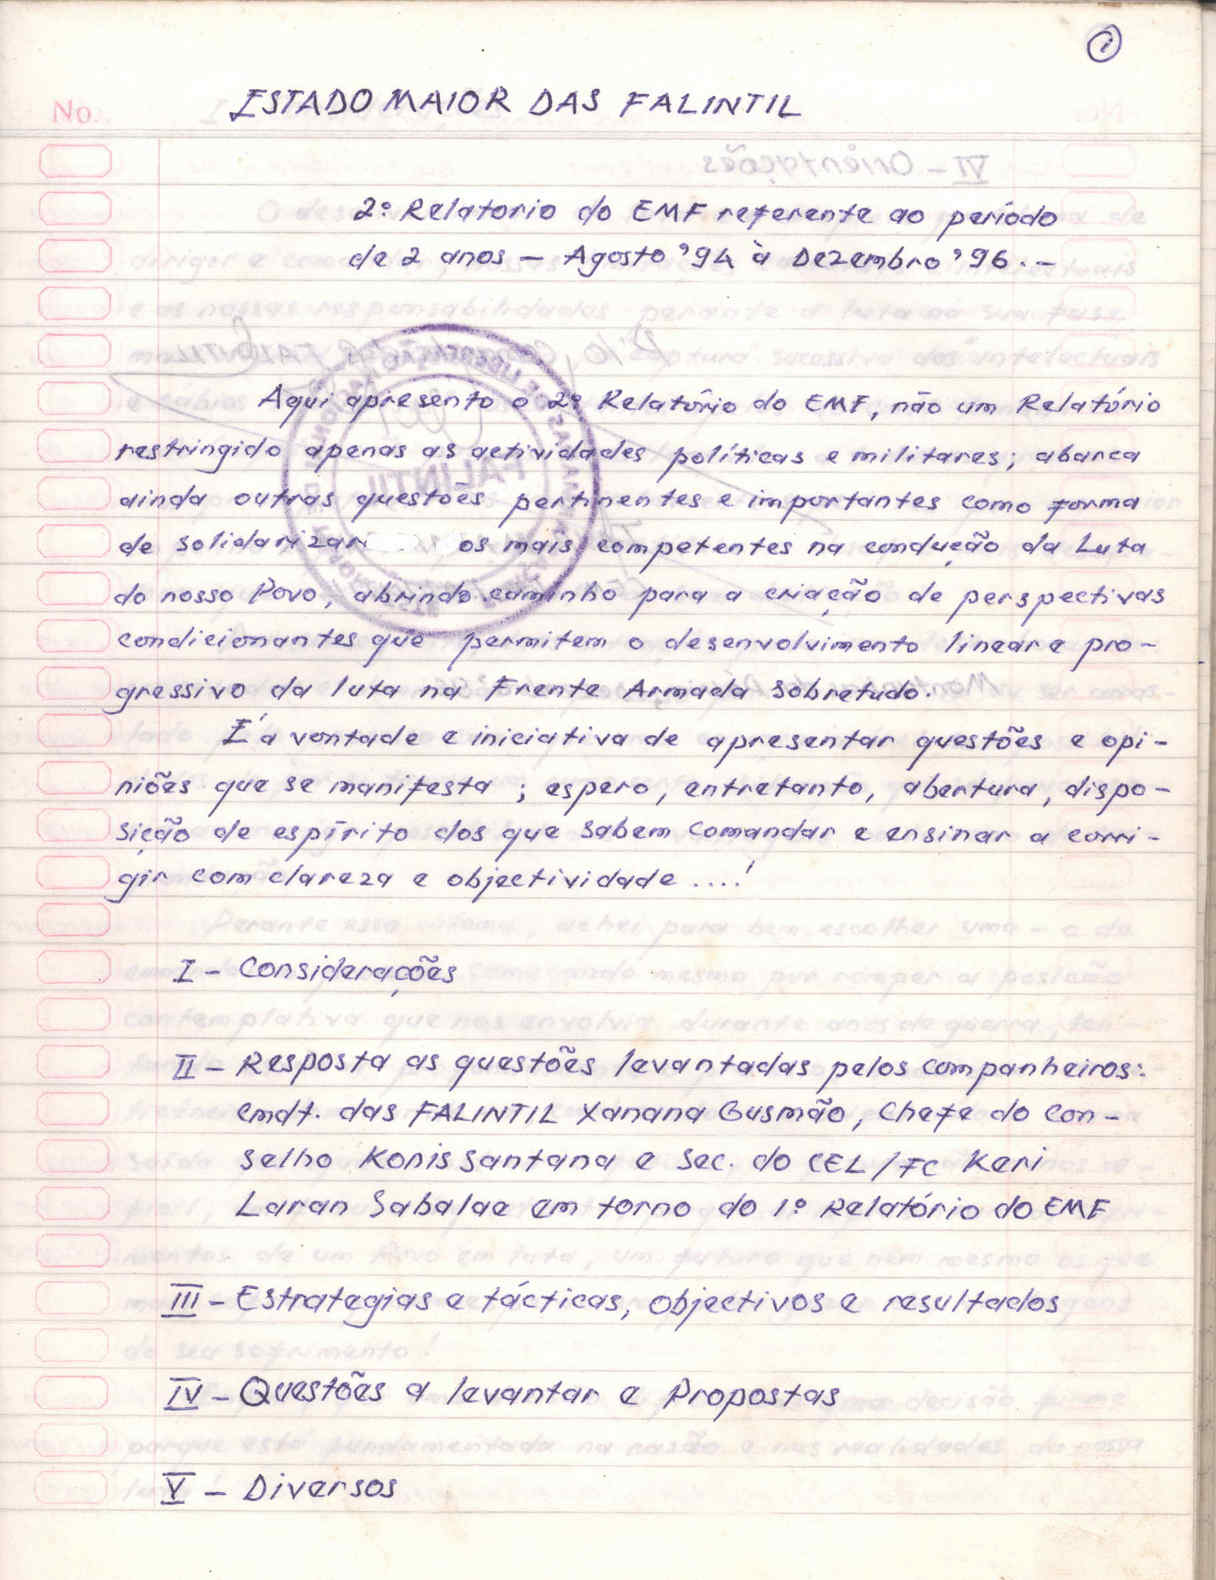 i
ESTADO MAIOR DAS FALINTIL
No.
2º Relatorio do EMF referente ao período
de 2 anos — Agosto '94 à Dezembro '96.-
Aqui apresento o 2º Relatório do EMF, não um Relatório
restringido apenas as actividades políticas e militares; abarca
ainda outras questões pertinentes e importantes como forma
de solidarizar os mais competentes na condução da Luta
do nosso Povo, abrindo caminho para a criação de perspectivas
condicionantes que permitem o desenvolvimento linear e pro-
gressivo da luta na Frente Armada sobretudo.
É a vontade e iniciativa de apresentar questões e opi-
niões que se manifesta; espero, entretanto, abertura, dispo-
sição de espírito dos que sabem comandar e ensinar a corri-
gir com clareza e objectividade ....!
I - Considerações
II - Resposta as questões levantadas pelos companheiros:
cmdt. das FALINTIL Xanana Gusmão, Chefe do Con-
selho Konis Santana e Sec. do CEL/FC Keri
Laran Sabalae em torno do 1º Relatório do EMF
III - Estrategias e tácticas, objectivos e resultados
IV - Questões a levantar e Propostas
V - Diversos